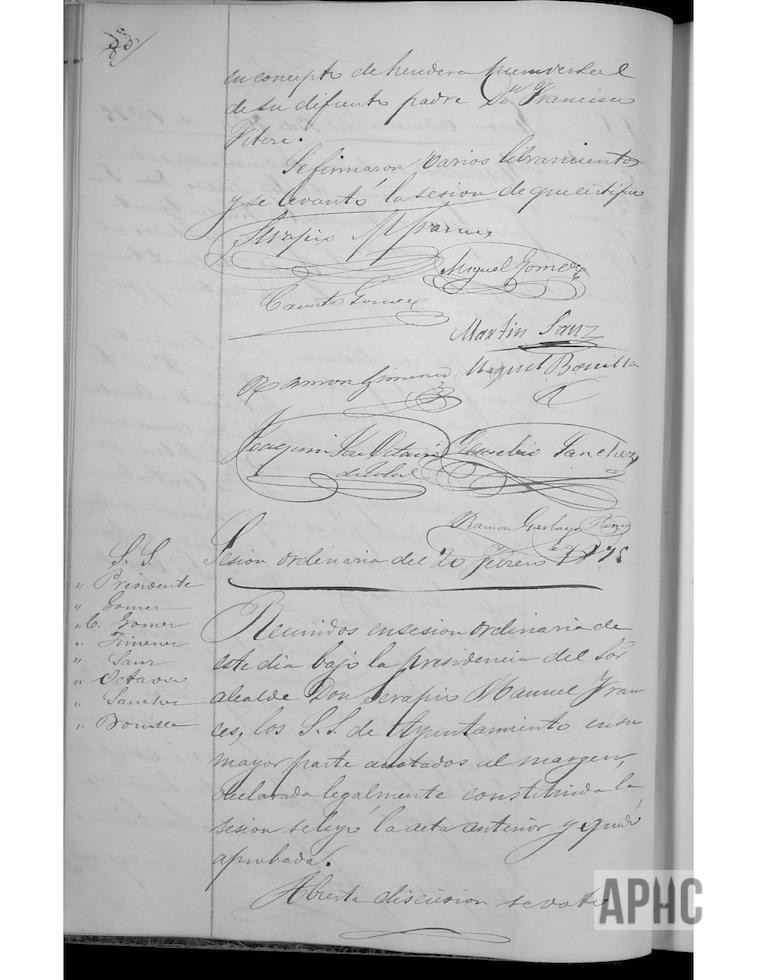 en concepto de heredera universal
de su difunto padre Dn Francisco
Se firmaron varios libramientos
y se levantó la sesion de que certifico
Serapio M Frances
Miguel Gomez
Gomez
Martin Sanz
Ramon Gimenez Miguel Bonilla
Joaquin San Octavio
de Toled
Eusebio Sanchez
Ramon Garbayo
Sesion ordinaria del 20 Febrero 1875
S. S.
" Presidente
" Gomez
" C. Gomez
" Jimenez
" Sanz
" Octavio
" Sanchez
" Bonilla
Reunidos en sesion ordinaria de
este dia bajo la presidencia del Sor
alcalde Don Serapio Manuel Fran
ces, los S. S. de Ayuntamiento en su
mayor parte anotados al margen,
declarada legalmente constituida la
sesion se leyó la acta anterior y quedó
aprobada.
Abierta discusion se
APHC